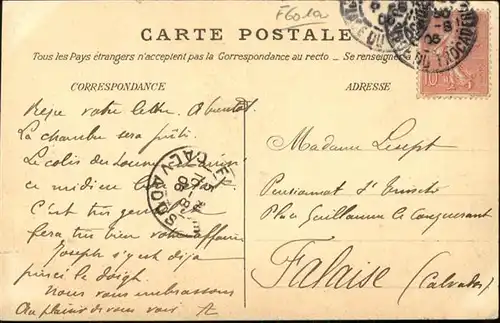 F60.10
CARTE POSTALE
Tous les Pays étrangers n'acceptent pas la Correspondance au recto — Se renseigner
CORRESPONDANCE
ADRESSE
Reçu votre lettre. A bientôt.
La chambre sera prête.
Le colis du Louvre
ce midi
CALVADOS
C'est très
Fera très bien votre affaire
Joseph s'y est déjà
pincé le doigt.
Nous vous embrassons
Au plaisir de vous voir
10
Madame
Pensionnat
Place Guillaume le Conquérant
Falaise
(Calvados)